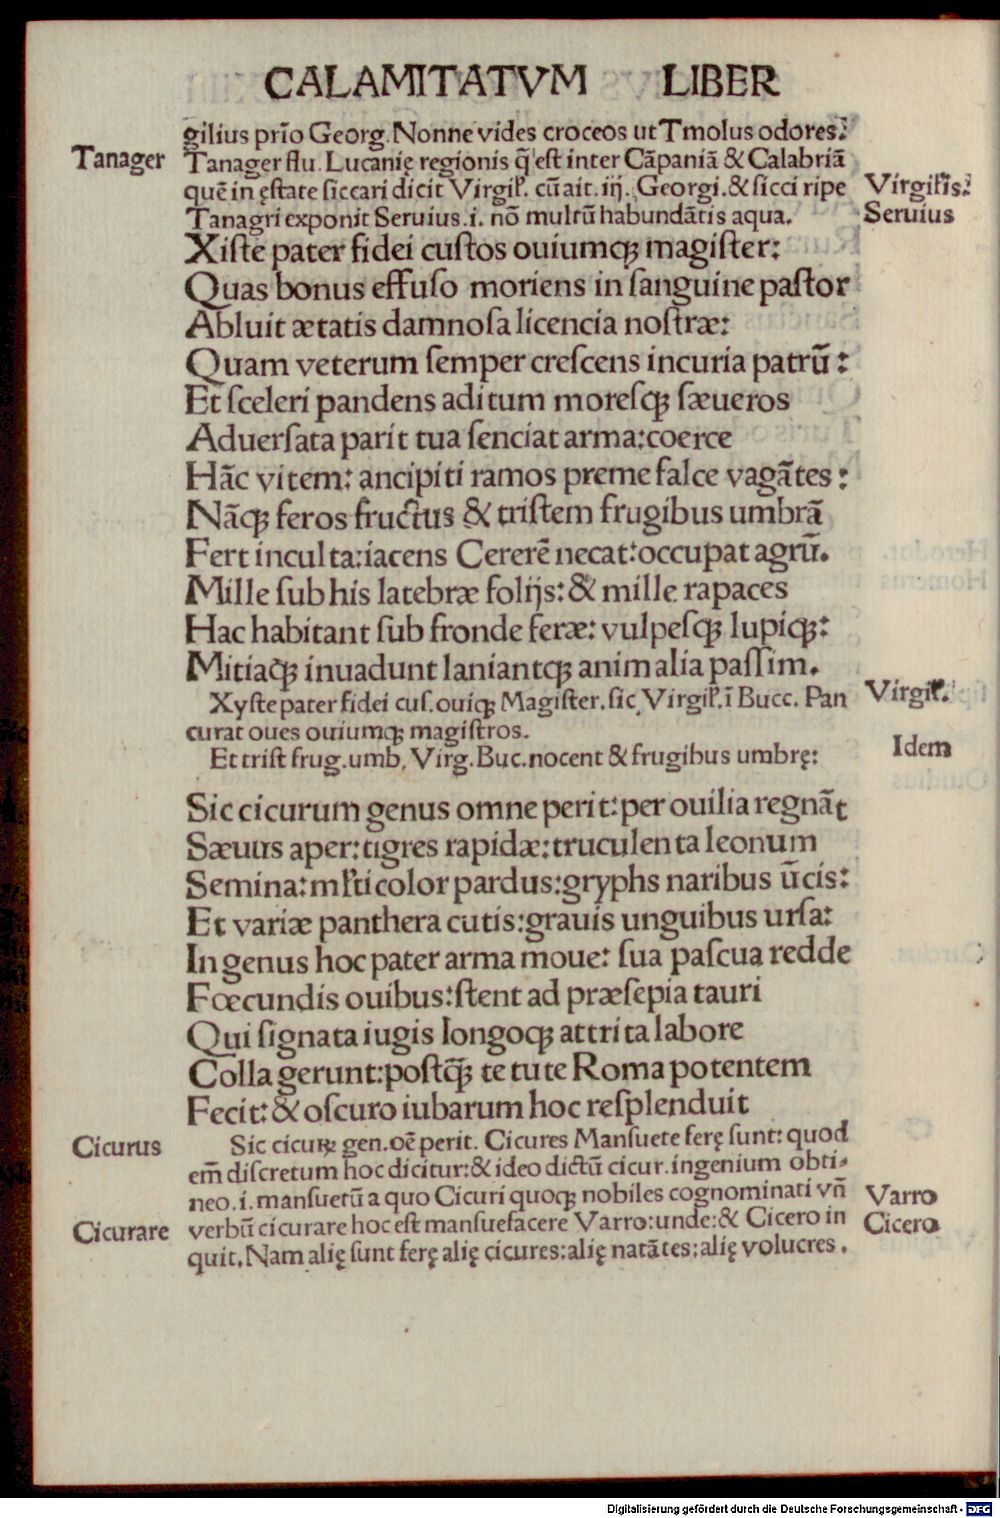 CALAMITATVM LIBER
gilius prĩo Georg. Nonne vides croceos ut Tmolus odores?
Tanager
Tanager flu. Lucanię regionis q̃ est inter Cãpaniã & Calabriã
quẽ in ęstate siccari dicit Virgił. cũ ait. iij. Georgi. & sicci ripe
Virgiłis?
Tanagri exponit Seruius .i. nõ multũ habundãtis aqua.
Seruius
Xiſte pater fidei cuſtos ouiumqꝫ magiſter:
Quas bonus effuſo moriens in ſanguine paſtor
Abluit ætatis damnoſa licencia noſtræ:
Quam veterum ſemper creſcens incuria patrũ:
Et ſceleri pandens aditum moreſqꝫ ſæueros
Aduerſata parit tua ſenciat arma: coerce
Hãc vitem: ancipiti ramos preme falce vagãtes:
Nãqꝫ feros fructus & triſtem frugibus umbrã
Fert inculta: iacens Cererẽ necat: occupat agrũ.
Mille ſub his latebræ folijs: & mille rapaces
Hac habitant ſub fronde feræ: vulpeſqꝫ lupiqꝫ:
Mitiaqꝫ inuadunt laniantqꝫ animalia paſſim.
Xyſte pater fidei cuſ. ouiqꝫ Magiſter. ſic Virgił. ĩ Bucc. Pan
Virgił.
curat oues ouiumqꝫ magiſtros.
Et triſt frug. umb. Virg. Buc. nocent & frugibus umbrę:
Idem
Sic cicurum genus omne perit: per ouilia regnãt
Sæuus aper: tigres rapidæ: truculenta leonum
Semina: młticolor pardus: gryphs naribus ũcis:
Et variæ panthera cutis: grauis unguibus urſa:
In genus hoc pater arma moue: ſua paſcua redde
Fœcundis ouibus: ſtent ad præſepia tauri
Qui ſignata iugis longoqꝫ attrita labore
Colla gerunt: poſtq̃ꝫ te tute Roma potentem
Fecit: & oſcuro iubarum hoc reſplenduit
Cicurus
Sic cicuꝝ gen. oẽ perit. Cicures Manſuete ferę ſunt: quod
em̃ diſcretum hoc dicitur: & ideo dictũ cicur. ingenium obti⸗
neo .i. manſuetũ a quo Cicuri quoqꝫ nobiles cognominati vñ
Varro
Cicurare
verbũ cicurare hoc eſt manſuefacere Varro: unde: & Cicero in
Cicero
quit. Nam alię ſunt ferę alię cicures: alię natãtes: alię volucres.
Digitalisierung gefördert durch die Deutsche Forschungsgemeinschaft - DFG